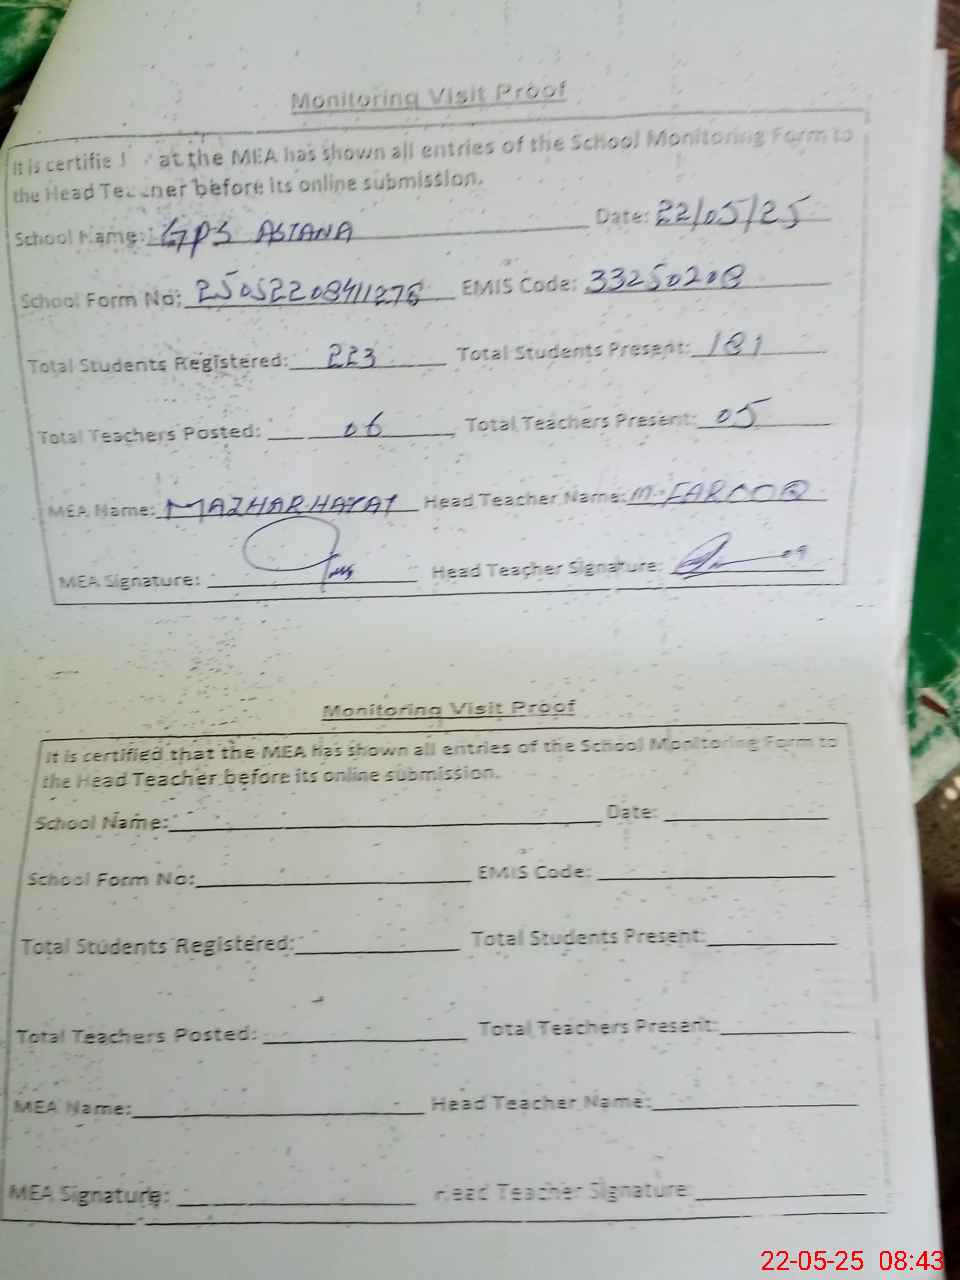 Monitoring Visit Proof
It is certifie at the MEA has shown all entries of the School Monitoring Form to
the Head Teacher before its online submission.
School Name: GPS ASTANA Date: 22/05/25
School Form No: EMIS Code: 33250208
Total Students Registered: 223 Total Students Present: 181
Total Teachers Posted: 06 Total Teachers Present: 05
MEA Name: MAZHAR HAYAT Head Teacher Name: M. FAROOQ
MEA Signature: Head Teacher Signature:
Monitoring Visit Proof
It is certified that the MEA has shown all entries of the School Monitoring Form to
the Head Teacher before its online submission.
School Name: Date:
School Form No: EMIS Code:
Total Students Registered: Total Students Present:
Total Teachers Posted: Total Teachers Present:
MEA Name: Head Teacher Name:
MEA Signature: Head Teacher Signature:
22-05-25 08:43